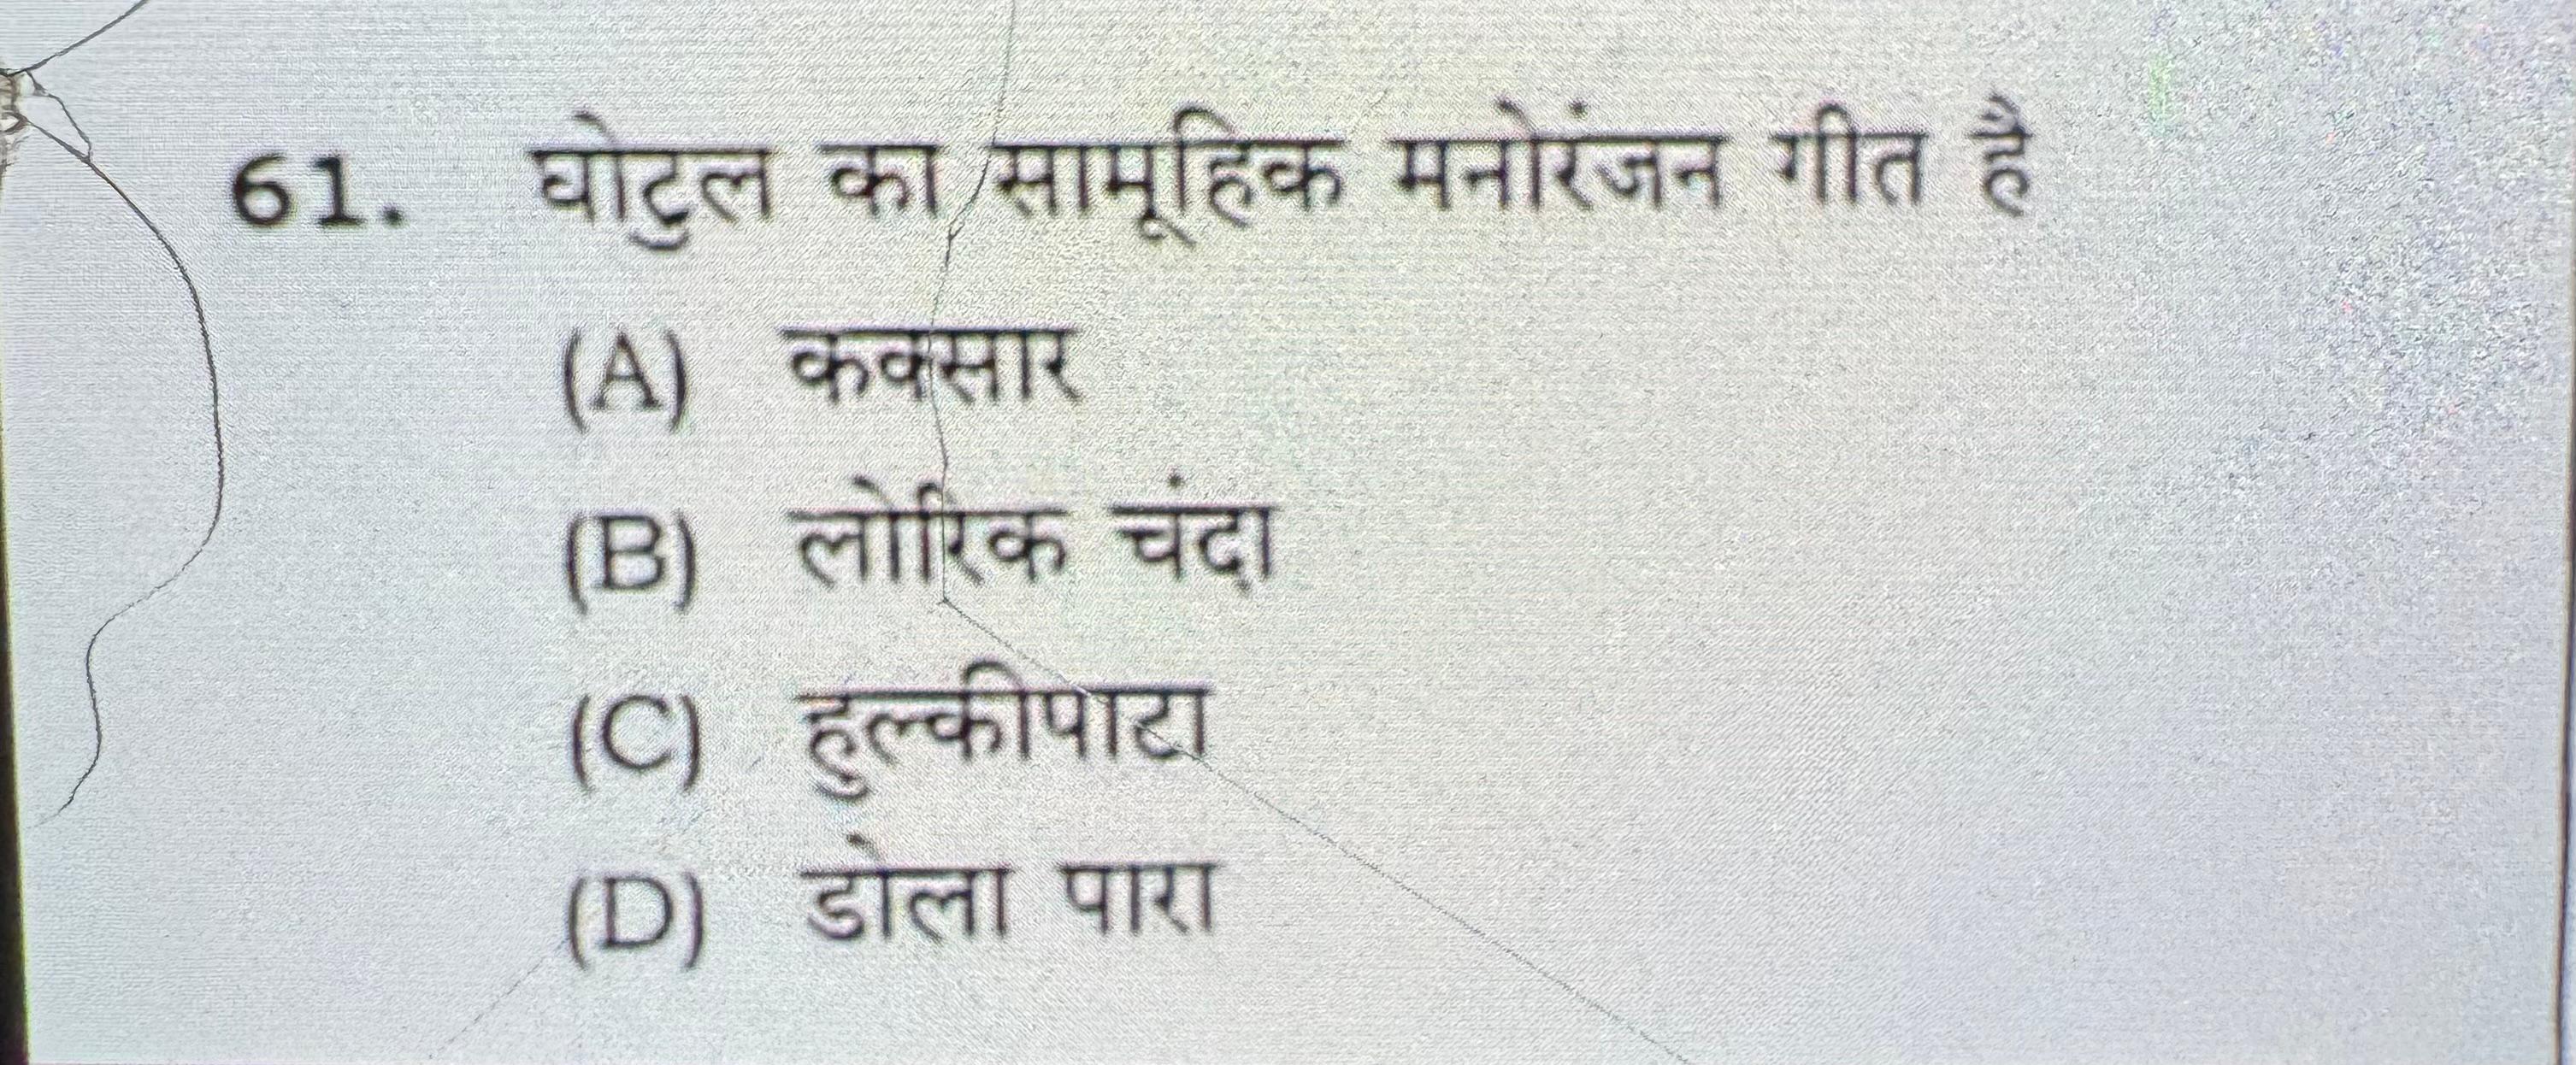 61. घोटुल का सामूहिक मनोरंजन गीत है
(A) कक्सार
(B) लोरिक चंदा
(C) हुल्कीपाटा
(D) डोला पारा